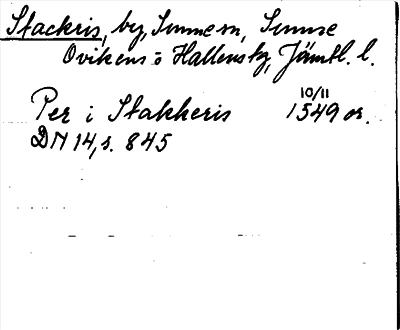 Stackris, by, Sunne sn, Sunne
Ovikens o Hallens tg, Jämtl. l.
10/11
Per i Stakkeris 1549 or.
DN 14, s. 845